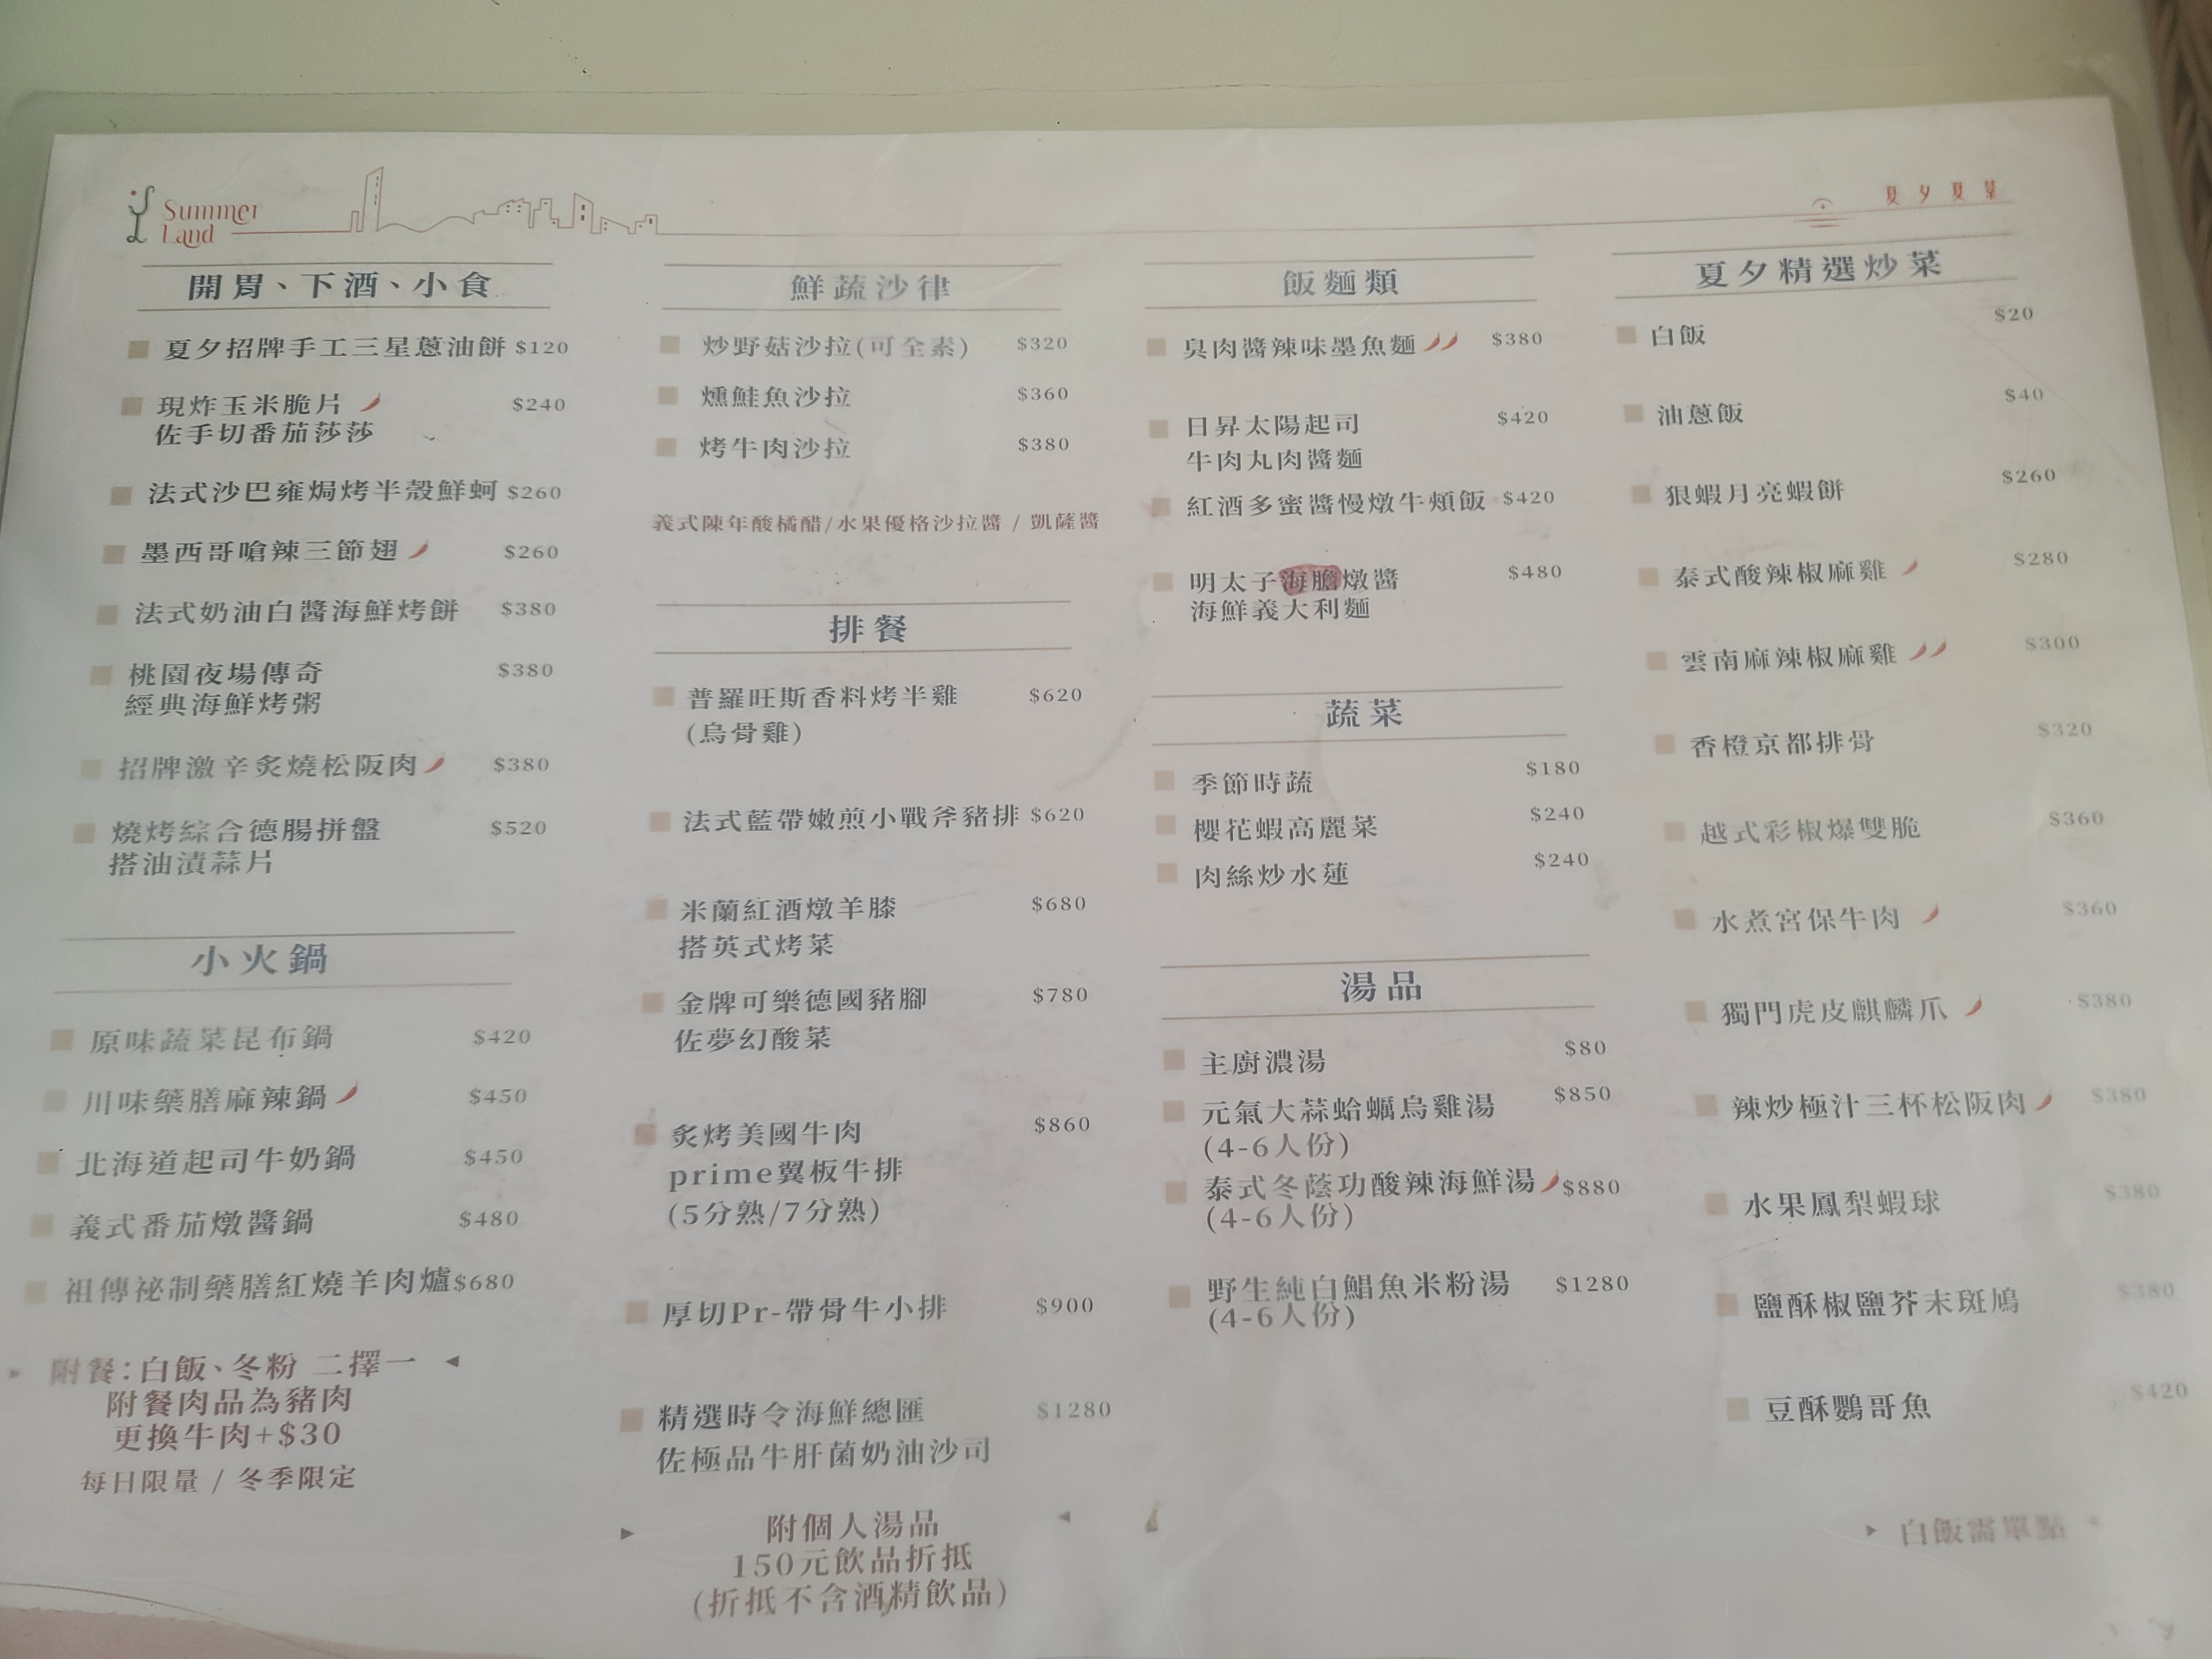 Summer
Land
夏夕夏景
開胃、下酒、小食
夏夕招牌手工三星蔥油餅 $120
現炸玉米脆片 $240
佐手切番茄莎莎
法式沙巴雍焗烤半殼鮮蚵 $260
墨西哥嗆辣三節翅 $260
法式奶油白醬海鮮烤餅 $380
桃園夜場傳奇 $380
經典海鮮烤粥
招牌激辛炙燒松阪肉 $380
燒烤綜合德腸拼盤 $520
搭油漬蒜片
小火鍋
原味蔬菜昆布鍋 $420
川味藥膳麻辣鍋 $450
北海道起司牛奶鍋 $450
義式番茄燉醬鍋 $480
祖傳祕制藥膳紅燒羊肉爐 $680
附餐:白飯、冬粉 二擇一
附餐肉品為豬肉
更換牛肉+$30
每日限量 / 冬季限定
鮮蔬沙律
炒野菇沙拉(可全素) $320
燻鮭魚沙拉 $360
烤牛肉沙拉 $380
義式陳年酸橘醋/水果優格沙拉醬 / 凱薩醬
排餐
普羅旺斯香料烤半雞 $620
(烏骨雞)
法式藍帶嫩煎小戰斧豬排 $620
米蘭紅酒燉羊膝 $680
搭英式烤菜
金牌可樂德國豬腳 $780
佐夢幻酸菜
炙烤美國牛肉 $860
prime翼板牛排
(5分熟/7分熟)
厚切Pr-帶骨牛小排 $900
精選時令海鮮總匯 $1280
佐極品牛肝菌奶油沙司
附個人湯品
150元飲品折抵
(折抵不含酒精飲品)
飯麵類
臭肉醬辣味墨魚麵 $380
日昇太陽起司 $420
牛肉丸肉醬麵
紅酒多蜜醬慢燉牛頰飯 $420
明太子海膽燉醬 $480
海鮮義大利麵
蔬菜
季節時蔬 $180
櫻花蝦高麗菜 $240
肉絲炒水蓮 $240
湯品
主廚濃湯 $80
元氣大蒜蛤蠣烏雞湯 $850
(4-6人份)
泰式冬蔭功酸辣海鮮湯 $880
(4-6人份)
野生純白鯧魚米粉湯 $1280
(4-6人份)
夏夕精選炒菜
白飯 $20
油蔥飯 $40
狠蝦月亮蝦餅 $260
泰式酸辣椒麻雞 $280
雲南麻辣椒麻雞 $300
香橙京都排骨 $320
越式彩椒爆雙脆 $360
水煮宮保牛肉 $360
獨門虎皮麒麟爪 $380
辣炒極汁三杯松阪肉 $380
水果鳳梨蝦球 $380
鹽酥椒鹽芥末斑鳩 $380
豆酥鸚哥魚 $420
白飯需單點